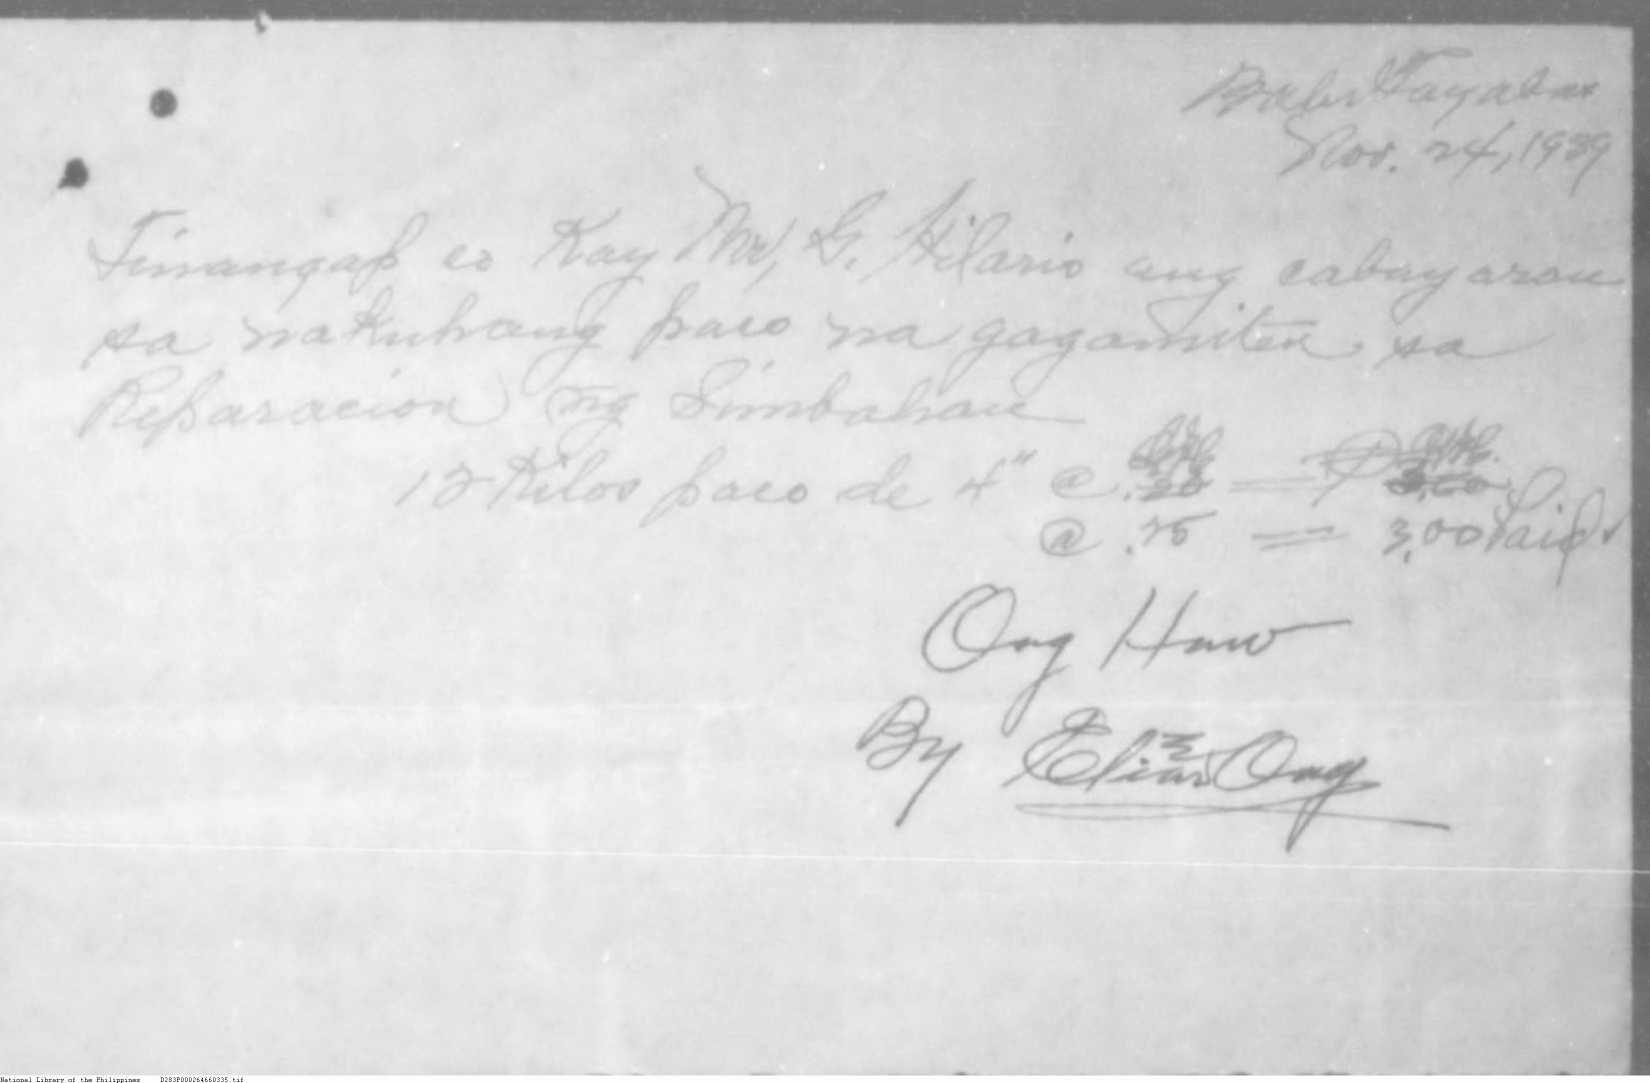 Baler Tayabas
Nov. 24, 1939
Tinangap co Kay Mr, G. Hilario ang cabayaran
sa nakuhang paco na gagamiten sa
Reparacion ng Simbahan
12 Kilos paco de 4" @ .20 = P 3.00
@ .25 = 3.00 Paid
Ong Huw
By Elias Ong
National Library of the Philippines D283P000264660335.tif